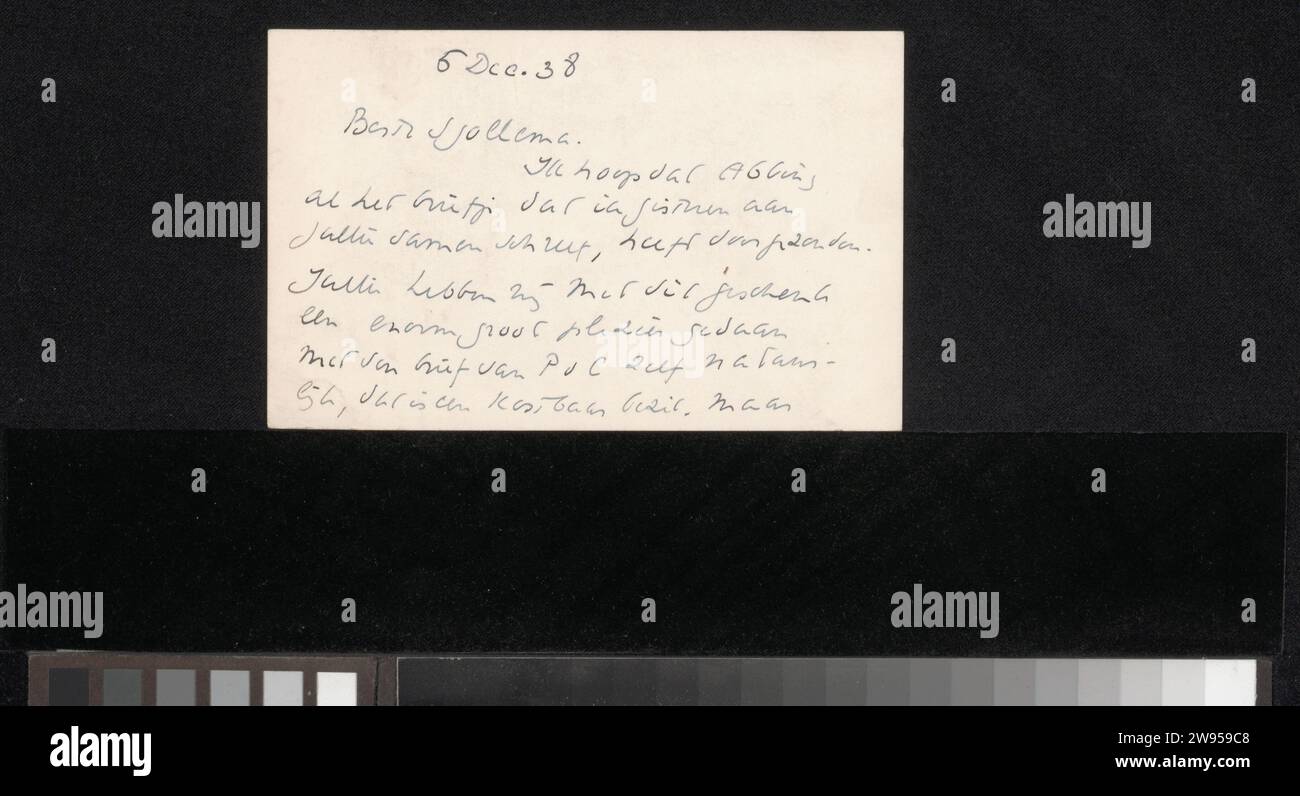 6 Dec. 38
Beste Sjollema.
Ik hoop dat Abbing
al het briefje dat ik gisteren aan
jullie samen schreef, heeft doorgezonden.
Jullie hebben mij met dit geschenk
een enorm groot plezier gedaan
met den brief van P v C zelf natuur-
lijk, dat is een kostbaar bezit. Maar
alamy
Image ID: 2W959C8
www.alamy.com